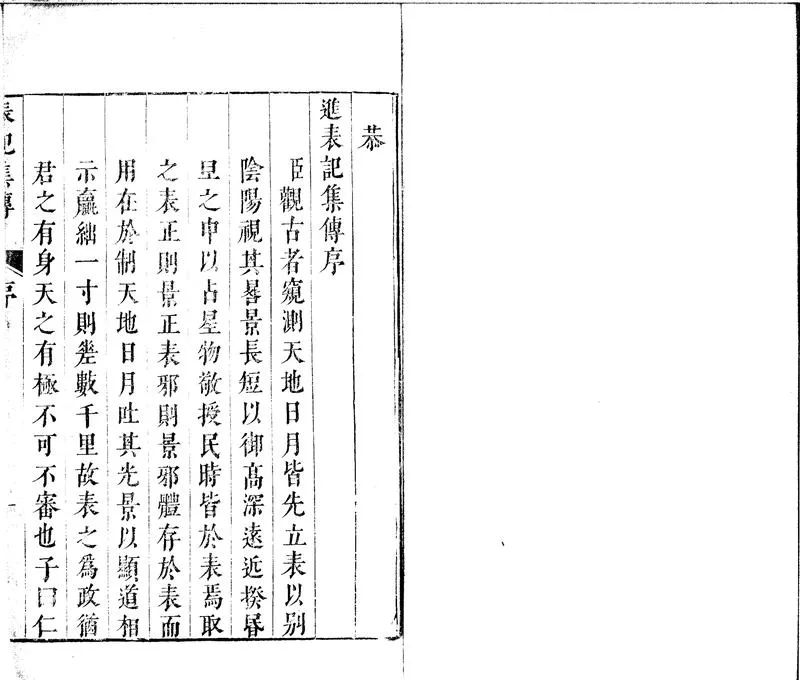 恭
進表記集傳序
臣觀古者窺測天地日月皆先立表以別
陰陽視其晷景長短以御高深遠近揆昏
旦之中以占星物敬授民時皆於表焉取
之表正則景正表邪則景邪體存於表而
用在於制天地日月吐其光景以顯道相
示贏絀一寸則幾數千里故表之爲政猶
君之有身天之有極不可不審也子曰仁
表記集傳 序 一